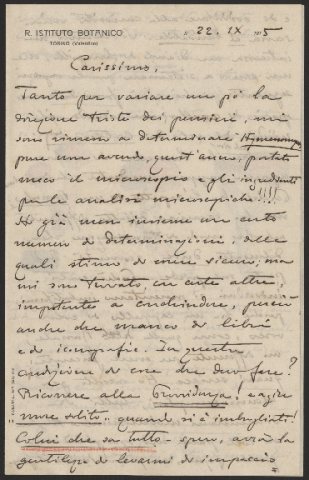 R. ISTITUTO BOTANICO
TORINO (VALENTINO)
22. IX 5
Carissimo,
Tanto per variare un pò la
direzione triste dei pensieri, mi
sono rimesso a determinare
pure non avendo, quest'anno, portato
meco il microscopio e gli ingredienti
per le analisi microscopiche!!!!
Ho già messo insieme un certo
numero di determinazioni, delle
quali stimo di essere sicuro; ma
mi sono trovato, con certe altre,
impotente a conchiudere, perchè
anche che manco di libri
e di iconografie. In questa
condizione di cose che devo fare?
Ricorrere alla Provvidenza! e agire
more solito.. quando si è imbrogliati!
Colui che sa tutto - spero, avrà la
gentilezza di levarmi di impaccio